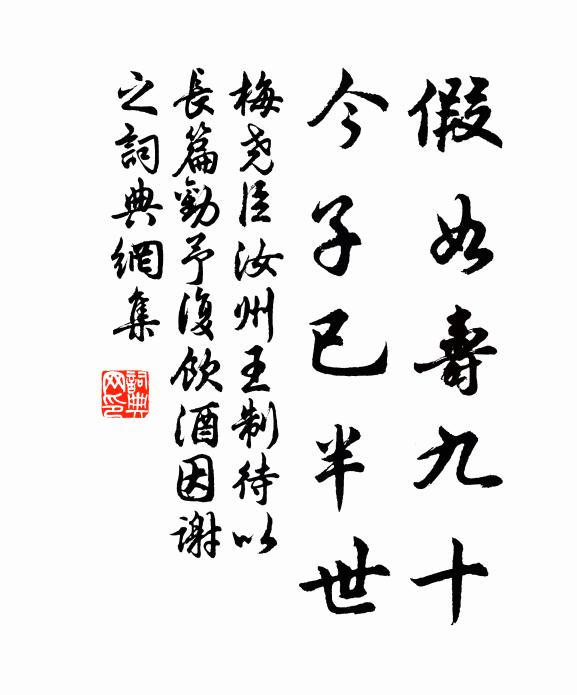 假如壽九十
今子已半世
梅尧臣汝州王制待以
長篇勸予復飲酒因谢
之詞典網集
詞典
网印